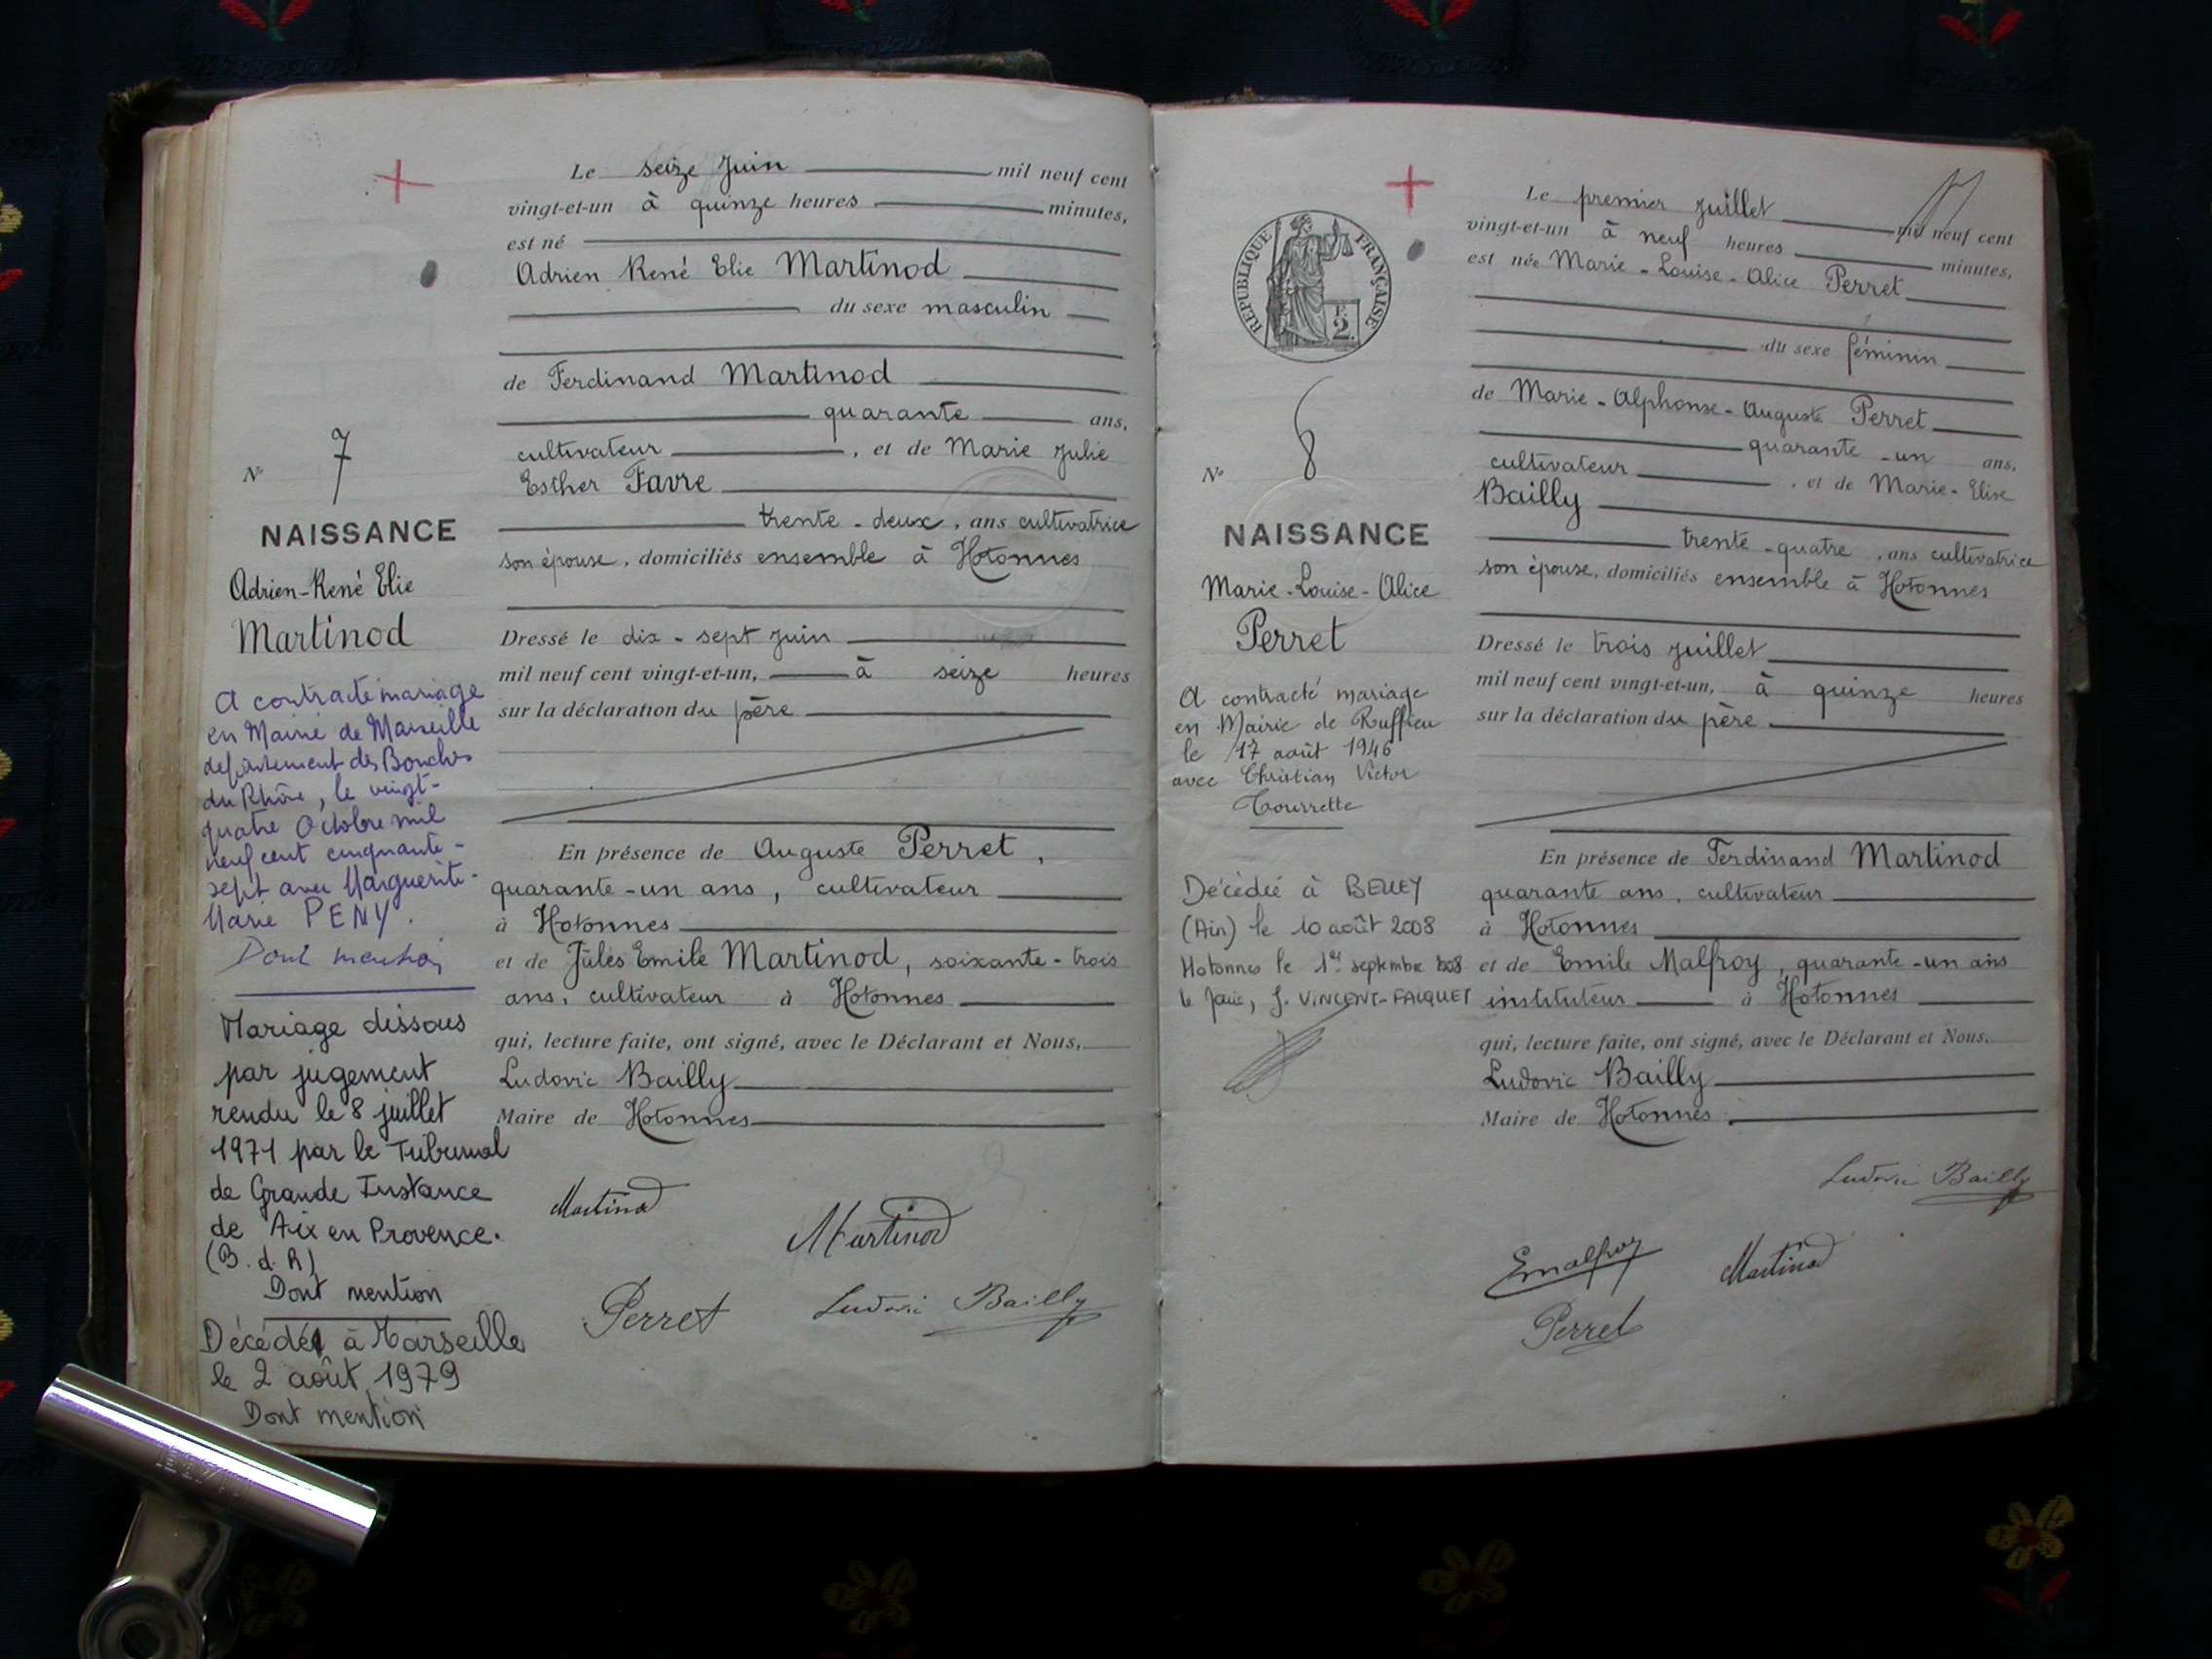 Le seize Juin mil neuf cent
vingt-et-un à quinze heures minutes,
est né
Adrien René Elie Martinod
du sexe masculin
de Ferdinand Martinod
quarante ans,
cultivateur, et de Marie Julie
Esther Favre
trente-deux, ans cultivatrice
son épouse, domiciliés ensemble à Hotonnes
Dressé le dix-sept Juin
mil neuf cent vingt-et-un, à seize heures
sur la déclaration du père
En présence de Auguste Perret,
quarante-un ans, cultivateur
à Hotonnes
et de Jules Emile Martinod, soixante-trois
ans, cultivateur à Hotonnes
qui, lecture faite, ont signé, avec le Déclarant et Nous,
Ludovic Bailly
Maire de Hotonnes
Martinod
Martinod
Perret
Ludovic Bailly
N° 7
NAISSANCE
Adrien-René Elie
Martinod
A contracté mariage
en Mairie de Marseille
département des Bouches
du Rhône, le vingt-
quatre Octobre mil
neuf cent cinquante-
sept avec Marguerite-
Marie PENY.
Dont mention
Mariage dissous
par jugement
rendu le 8 juillet
1971 par le Tribunal
de Grande Instance
de Aix en Provence.
(B.d.R)
Dont mention
Décédé à Marseille
le 2 août 1979
Dont mention
REPUBLIQUE FRANÇAISE
2
N° 8
NAISSANCE
Marie-Louise-Alice
Perret
A contracté mariage
en Mairie de Ruffieu
le 17 août 1946
avec Christian Victor
Tourrette
Décédée à BELLEY
(Ain) le 10 août 2008
Hotonnes le 1er septembre 2008
le Maire, J. VINCENT-FALQUET
Le premier juillet mil neuf cent
vingt-et-un à neuf heures minutes,
est née Marie-Louise-Alice Perret
du sexe féminin
de Marie-Alphonse-Auguste Perret
quarante-un ans,
cultivateur, et de Marie-Elise
Bailly
trente-quatre, ans cultivatrice
son épouse, domiciliés ensemble à Hotonnes
Dressé le trois juillet
mil neuf cent vingt-et-un, à quinze heures
sur la déclaration du père
En présence de Ferdinand Martinod
quarante ans, cultivateur
à Hotonnes
et de Emile Malfroy, quarante-un ans
instituteur à Hotonnes
qui, lecture faite, ont signé, avec le Déclarant et Nous,
Ludovic Bailly
Maire de Hotonnes
Ludovic Bailly
Emalfroy
Martinod
Perret